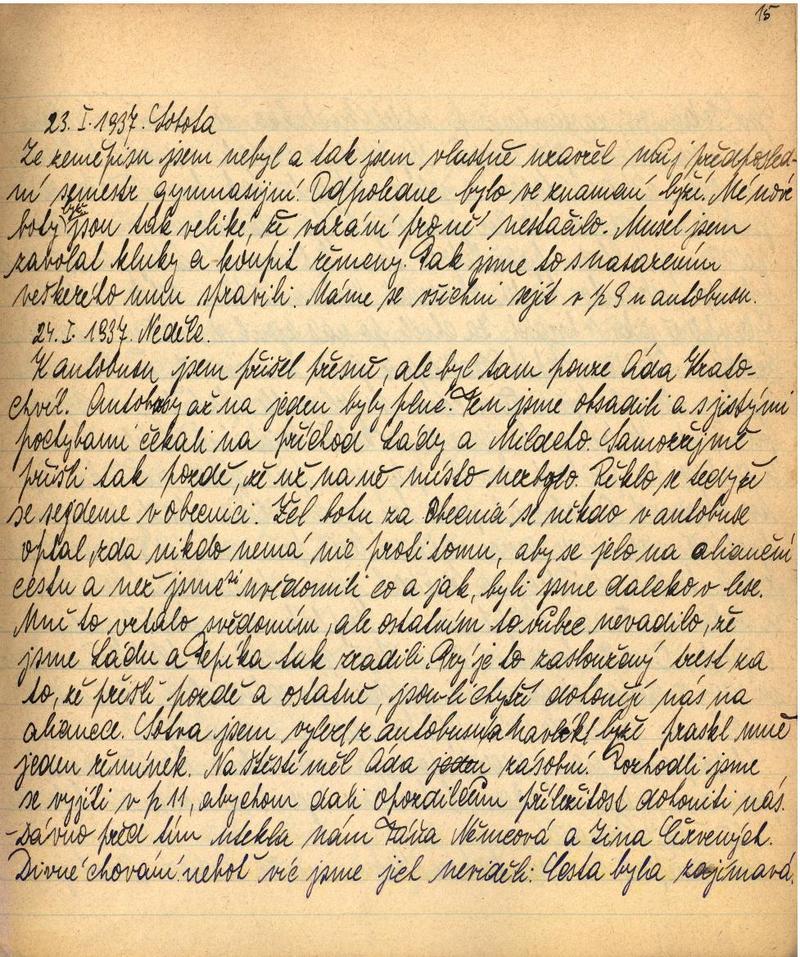 15
23. I. 1937. Sobota
Ze zeměpisu jsem nebyl a tak jsem vlastně uzavřel můj předposled-
ní semestr gymnasijní. Odpoledne bylo ve znamení lyží. Mé nové
boty jsou tak veliké, že vázání prostě nestačilo. Musel jsem
zavolat kluky a koupit řemeny. Pak jsme to s nasazením
veškerého umu spravili. Máme se všichni sejít v ½ 9 u autobusu.
24. I. 1937. Neděle.
K autobusu jsem přišel přesně, ale byl tam pouze Áda Krato-
chvíl. Autobusy až na jeden byly plné. Ten jsme obsadili a s jistými
pochybami čekali na příchod Lády a Mildeho. Samozřejmě
přišli tak pozdě, že už na ně místo nezbylo. Řeklo se tedy že
se sejdeme v Obecnici. Žel bohu za Obecnicí se někdo v autobuse
optal, zda nikdo nemá nic proti tomu, aby se jelo na alianční
cestu a než jsme si uvědomili co a jak, byli jsme daleko v lese.
Mně to vrtalo svědomím, ale ostatním to vůbec nevadilo, že
jsme Ládu a Pepíka tak zradili. Prý je to zasloužený trest za
to, že přišli pozdě a ostatně, jsou-li chytří dohoní nás na
aliance. Sotva jsem vylezl z autobusu a navlékl lyže praskl mně
jeden řemínek. Na štěstí měl Áda jeden zásobní. Rozhodli jsme
se vyjíti v ½ 11, abychom dali opozdilcům příležitost dohoniti nás.
Dávno před tím utekla nám Táňa Němcová a Zina Červených.
Divné chování neboť víc jsme jich neviděli. Cesta byla zajímavá.